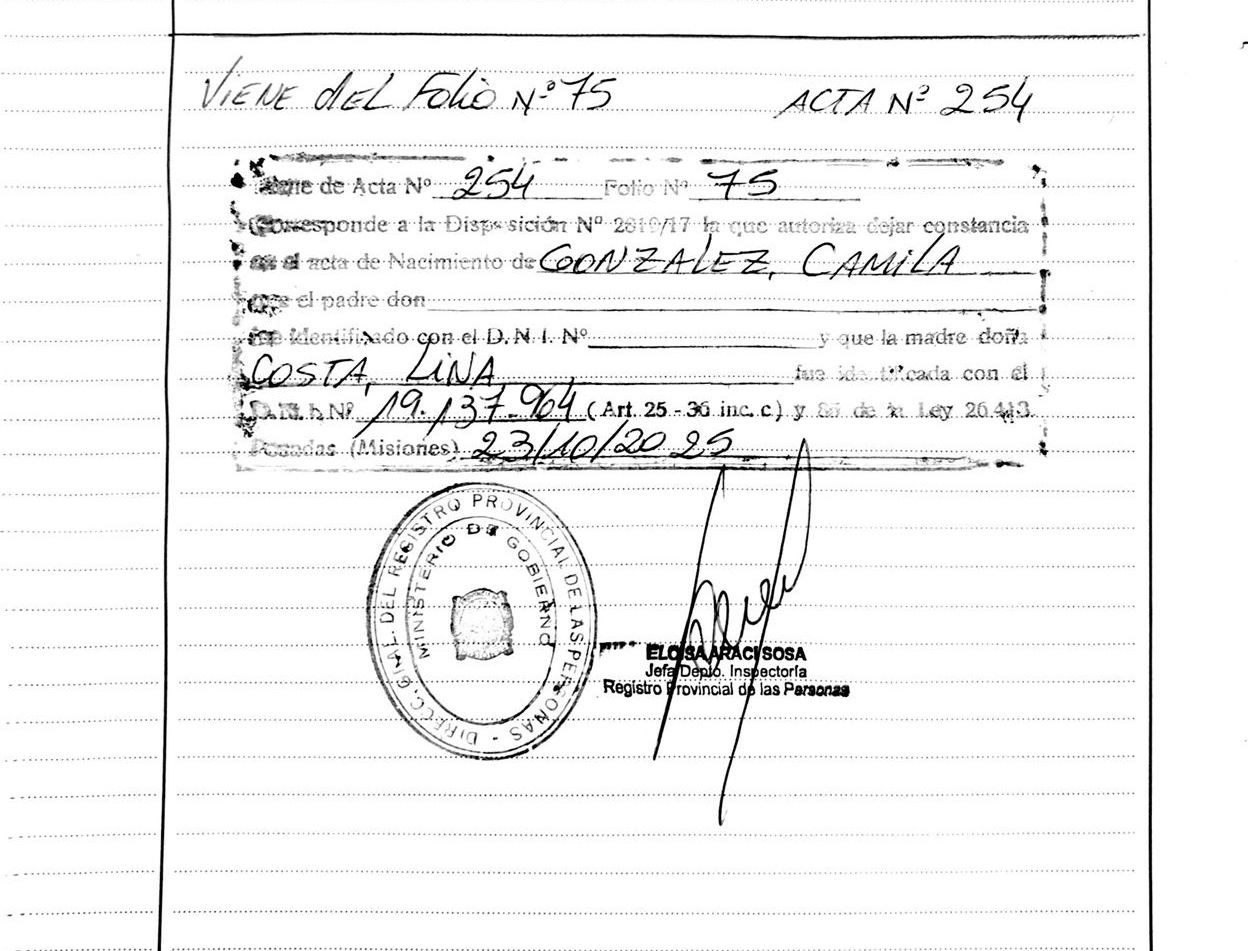 VIENE dEL FoLio Nº 75 ACTA Nº 254
de Acta Nº 254 Folio Nº 75
Corresponde a la Disposición Nº 2819/17 la que autoriza dejar constancia
en el acta de Nacimiento de GONZALEZ, CAMiLA
que el padre don
fue identificado con el D. N. I. Nº y que la madre doña
COSTA, LiNA fue identificada con el
D. N. I. Nº 19.137.964 ( Art. 25 - 36 inc. c ) y 86 de la Ley 26.413
Posadas (Misiones) 23/10/2025
DIRECC. GRAL. DEL REGISTRO PROVINCIAL DE LAS PERSONAS -
MINISTERIO DE GOBIERNO
ELOISA ARACI SOSA
Jefa Depto. Inspectoría
Registro Provincial de las Personas